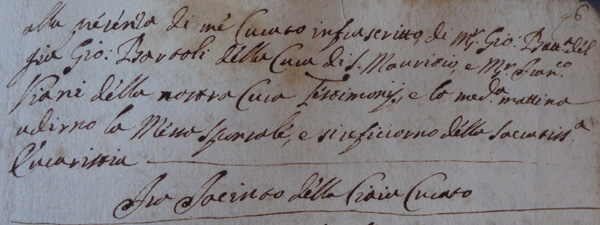 96
alla presenza di me Curato infrascritto, di Mr. Gio: Batta. del
qm Gio: Bartoli della Cura di S. Maurizio e Mr. Franco
Viani della nostra Cura Testimonij, e la meda. mattina
udirno la Messa Sponsale, e si reficiorno della Sacratissa.
Eucaristia
Fra Jacinto della Ciaia Curato